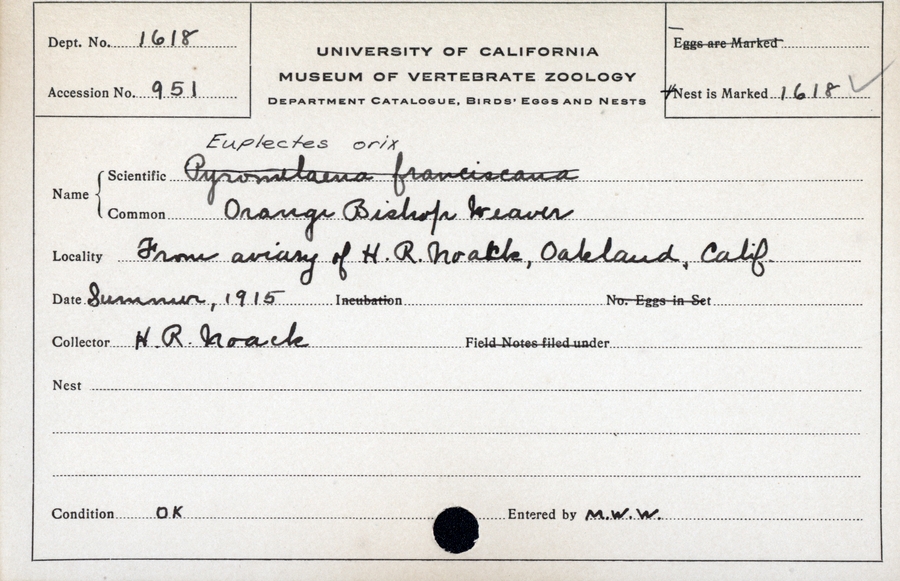 Dept. No. 1618
Accession No. 951
UNIVERSITY OF CALIFORNIA
MUSEUM OF VERTEBRATE ZOOLOGY
DEPARTMENT CATALOGUE, BIRDS' EGGS AND NESTS
Eggs are Marked
Nest is Marked 1618 ✓
Euplectes orix
Name Scientific Pyromelaena franciscana
Common Orange Bishop Weaver
Locality From aviary of H. R. Noack, Oakland, Calif.
Date Summer, 1915 Incubation No. Eggs in Set
Collector H. R. Noack Field Notes filed under
Nest
Condition OK Entered by M.W.W.